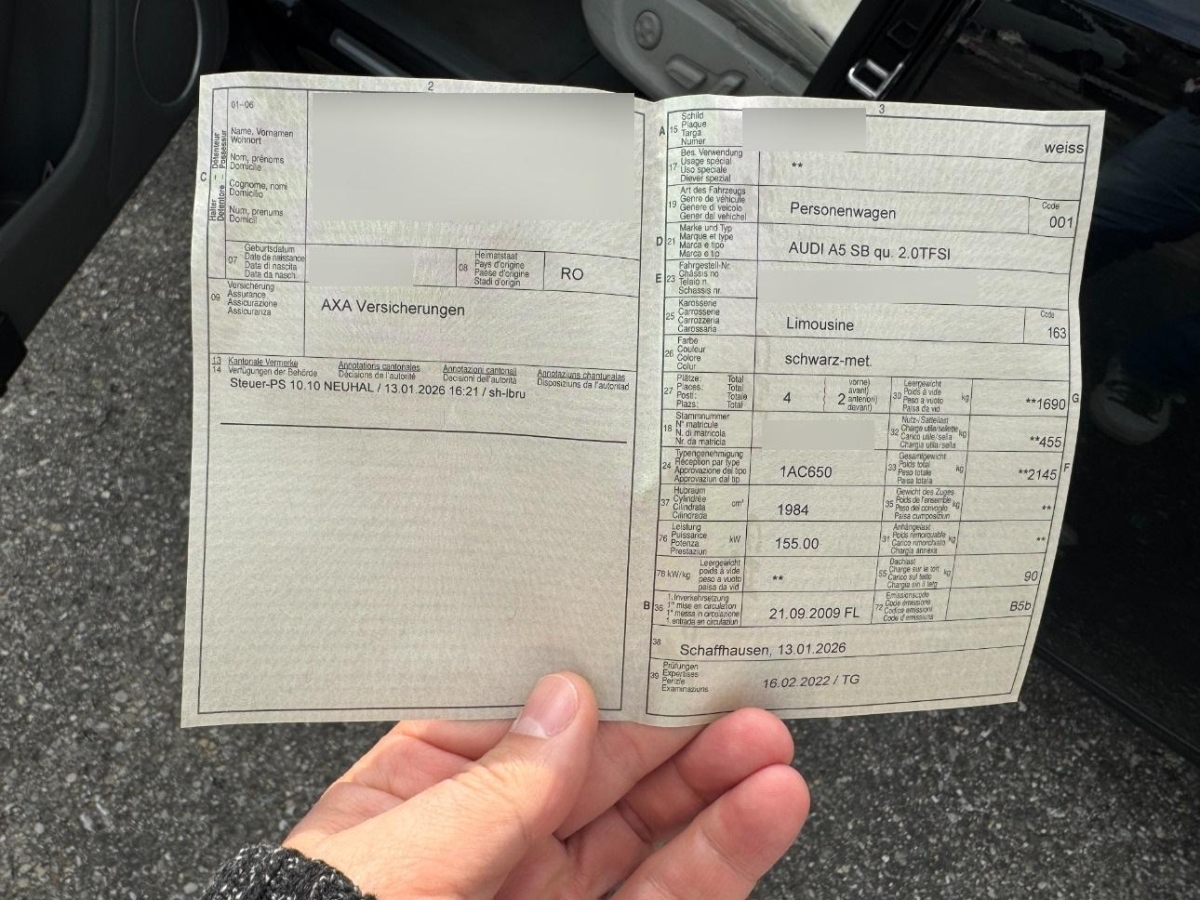 2
01–06
Name, Vornamen
Wohnort
Nom, prénoms
Domicile
Cognome, nomi
Domicilio
Num, prenums
Domicil
C
Halter – Détenteur
Detentore – Possessur
07
Geburtsdatum
Date de naissance
Data di nascita
Data da nasch.
08
Heimatstaat
Pays d'origine
Paese d'origine
Stadi d'origin
RO
09
Versicherung
Assurance
Assicurazione
Assicuranza
AXA Versicherungen
13
14
Kantonale Vermerke
Verfügungen der Behörde
Annotations cantonales
Décisions de l'autorité
Annotazioni cantonali
Decisioni dell'autorità
Annotaziuns chantunalas
Disposiziuns da l'autoritad
Steuer-PS 10.10 NEUHAL / 13.01.2026 16:21 / sh-lbru
3
A
15
Schild
Plaque
Targa
Numer
weiss
17
Bes. Verwendung
Usage spécial
Uso speciale
Diever spezial
**
19
Art des Fahrzeugs
Genre de véhicule
Genere di veicolo
Gener dal vehichel
Personenwagen
Code
001
D
21
Marke und Typ
Marque et type
Marca e tipo
Marca e tip
AUDI A5 SB qu. 2.0TFSI
E
23
Fahrgestell-Nr.
Châssis no
Telaio n.
Schassis nr.
25
Karosserie
Carrosserie
Carrozzeria
Carossaria
Limousine
Code
163
26
Farbe
Couleur
Colore
Colur
schwarz-met.
27
Plätze: Total
Places: Total
Posti: Totale
Plazs: Total
4
2
vorne)
avant)
anteriori)
davant)
30
Leergewicht
Poids à vide
Peso a vuoto
Paisa da vid
kg
**1690
G
18
Stammnummer
N° matricule
N. di matricola
Nr. da matricla
32
Nutz-/Sattellast
Charge utile/sellette
Carico utile/sella
Chargia utila/sella
kg
**455
24
Typengenehmigung
Réception par type
Approvazione del tipo
Approvaziun dal tip
1AC650
33
Gesamtgewicht
Poids total
Peso totale
Paisa totala
kg
**2145
F
37
Hubraum
Cylindrée
Cilindrata
Cilindrada
cm³
1984
35
Gewicht des Zuges
Poids de l'ensemble
Peso del convoglio
Paisa cumposiziun
**
76
Leistung
Puissance
Potenza
Prestaziun
kW
155.00
31
Anhängelast
Poids remorquable
Carico rimorchiato
Chargia annexa
kg
**
78
kW/kg
Leergewicht
poids à vide
peso a vuoto
paisa da vid
**
55
Dachlast
Charge sur le toit
Carico sul tetto
Chargia sin il tetg
kg
90
B
36
1. Inverkehrsetzung
1re mise en circulation
1a messa in circolazione
1. entrada en circulaziun
21.09.2009 FL
72
Emissionscode
Code émissions
Codice emissioni
Code d'emissiuns
B5b
38
Schaffhausen, 13.01.2026
39
Prüfungen
Expertises
Perizie
Examinaziuns
16.02.2022 / TG